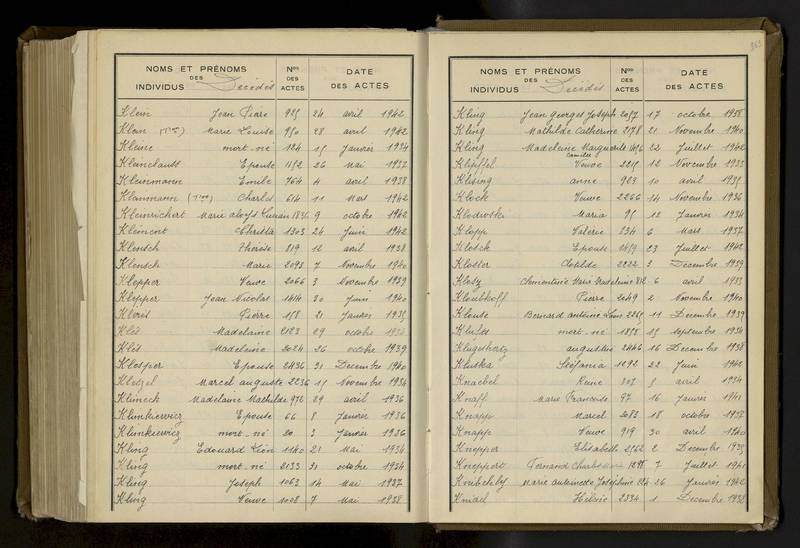 NOMS ET PRÉNOMS DES INDIVIDUS Décédés Nos DES ACTES DATE DES ACTES
Klein Jean Pierre 925 24 avril 1942
Klein Marie Louise 950 28 avril 1942
Kleine mort-né 124 15 Janvier 1934
Kleinclauss Epouse 1152 26 Mai 1937
Kleinmann Emile 764 4 avril 1938
Kleinmann Charles 614 11 Mars 1942
Kleinrichert Marie 1836 9 octobre 1942
Clemont Christia 1303 24 Juin 1942
Klensch Thérèse 819 12 avril 1938
Klensch Marie 2098 7 Novembre 1940
Klepper Veuve 2066 3 Novembre 1939
Klepper Jean Nicolas 1414 30 Juin 1940
Pierre 158 21 Janvier 1935
Klès Madelaine 2123 29 octobre 1938
Klès Madelaine 2024 26 octobre 1939
Klesper Epouse 2436 31 Decembre 1940
Kletzel Marcel auguste 2236 15 Novembre 1934
Klimeck Madelaine Mathilde 972 29 avril 1936
Klimkiewicz Epouse 66 8 Janvier 1936
Klimkiewicz mort-né 20 3 Janvier 1936
Kling Edouard Léon 1140 21 Mai 1934
Kling mort-né 2133 31 octobre 1934
Kling Joseph 1063 14 Mai 1937
Kling Veuve 1008 7 Mai 1938
363
NOMS ET PRÉNOMS DES INDIVIDUS Décédés Nos DES ACTES DATE DES ACTES
Kling Jean georges Joseph 2057 17 octobre 1938
Kling Mathilde Catherine 2178 21 Novembre 1940
Kling Madeleine Marguerite Camille 1496 22 Juillet 1942
Klipffel Veuve 2215 12 Novembre 1935
Klising anne 923 10 avril 1935
Klock Veuve 2266 14 Novembre 1936
Klodwski Maria 95 12 Janvier 1934
Klopp Valérie 534 6 Mars 1937
Klotsch Epouse 1519 23 Juillet 1942
Kloster Clotilde 2232 3 Décembre 1939
Klotz Clementine Marie Madeleine 812 6 avril 1933
Kloubkoff Pierre 2049 2 Novembre 1940
Bernard antoine Louis 2269 11 Decembre 1939
mort-né 1858 15 Septembre 1934
augustine 2446 16 Decembre 1938
Kluska Stéfania 1292 22 Juin 1942
Knaebel René 5 avril 1934
Knaff Marie Françoise 97 16 Janvier 1941
Knapp Marcel 2083 18 octobre 1938
Knapp Veuve 919 30 avril 1940
Knepper Elisabeth 2562 2 Decembre 1935
Kneppert Fernand Charles 1298 7 Juillet 1941
Marie antoinette Joséphine 224 26 Janvier 1942
Knied 2334 1 Decembre 1938